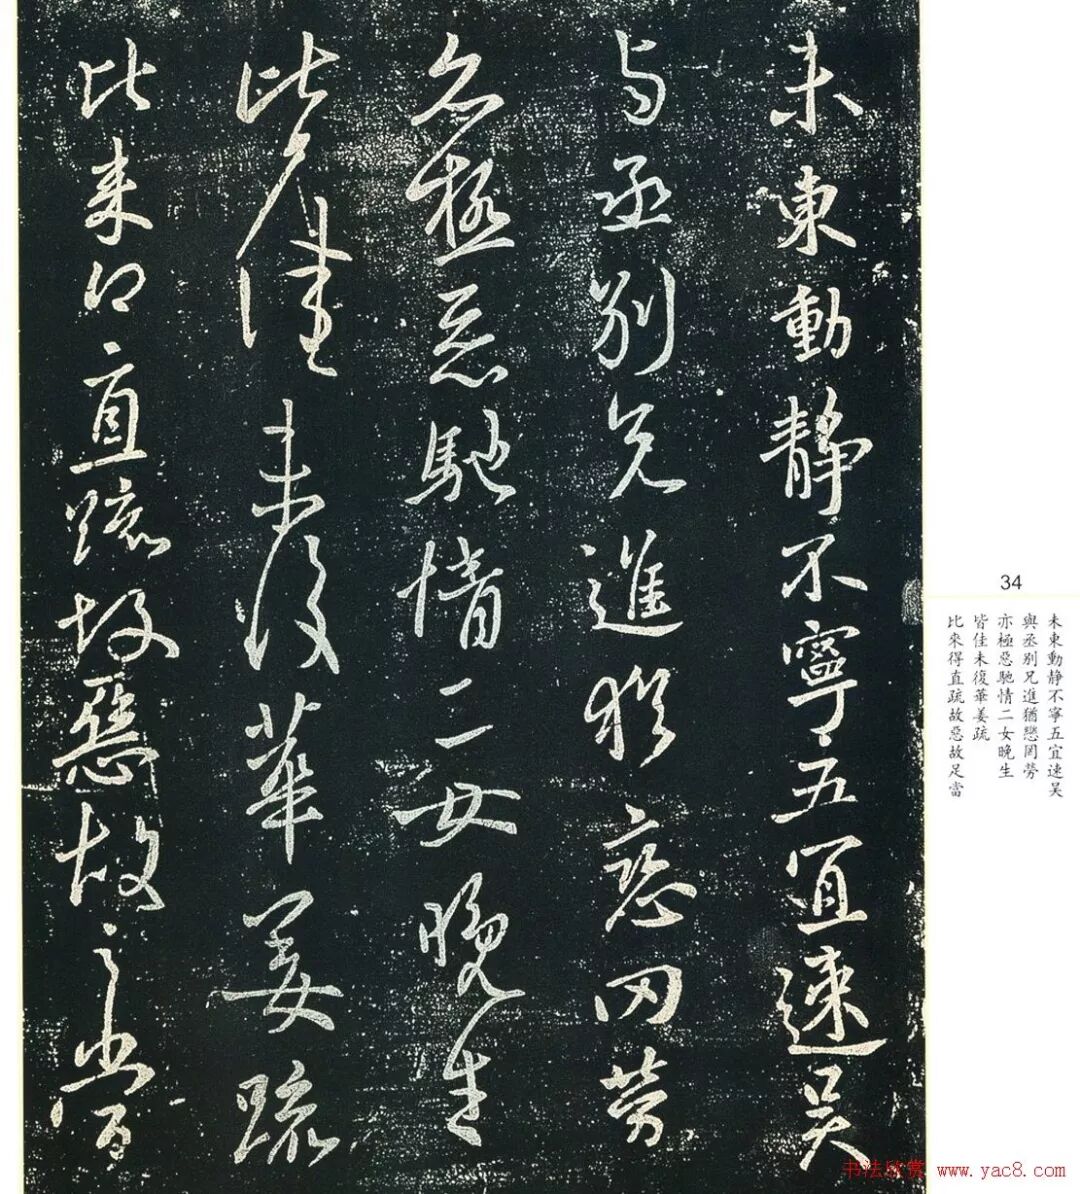 未東動靜不寧五宜速吳
与丞别兄進猶戀罔勞
亦極惡馳情二女晚生
皆佳未復華姜疏
比來得直疏故惡故足當
34
未東動静不寧五宜速吴
與丞别兄進猶戀罔勞
亦極惡馳情二女晚生
皆佳未復華姜疏
比來得直疏故惡故足當
书法欣赏 www.yac8.com